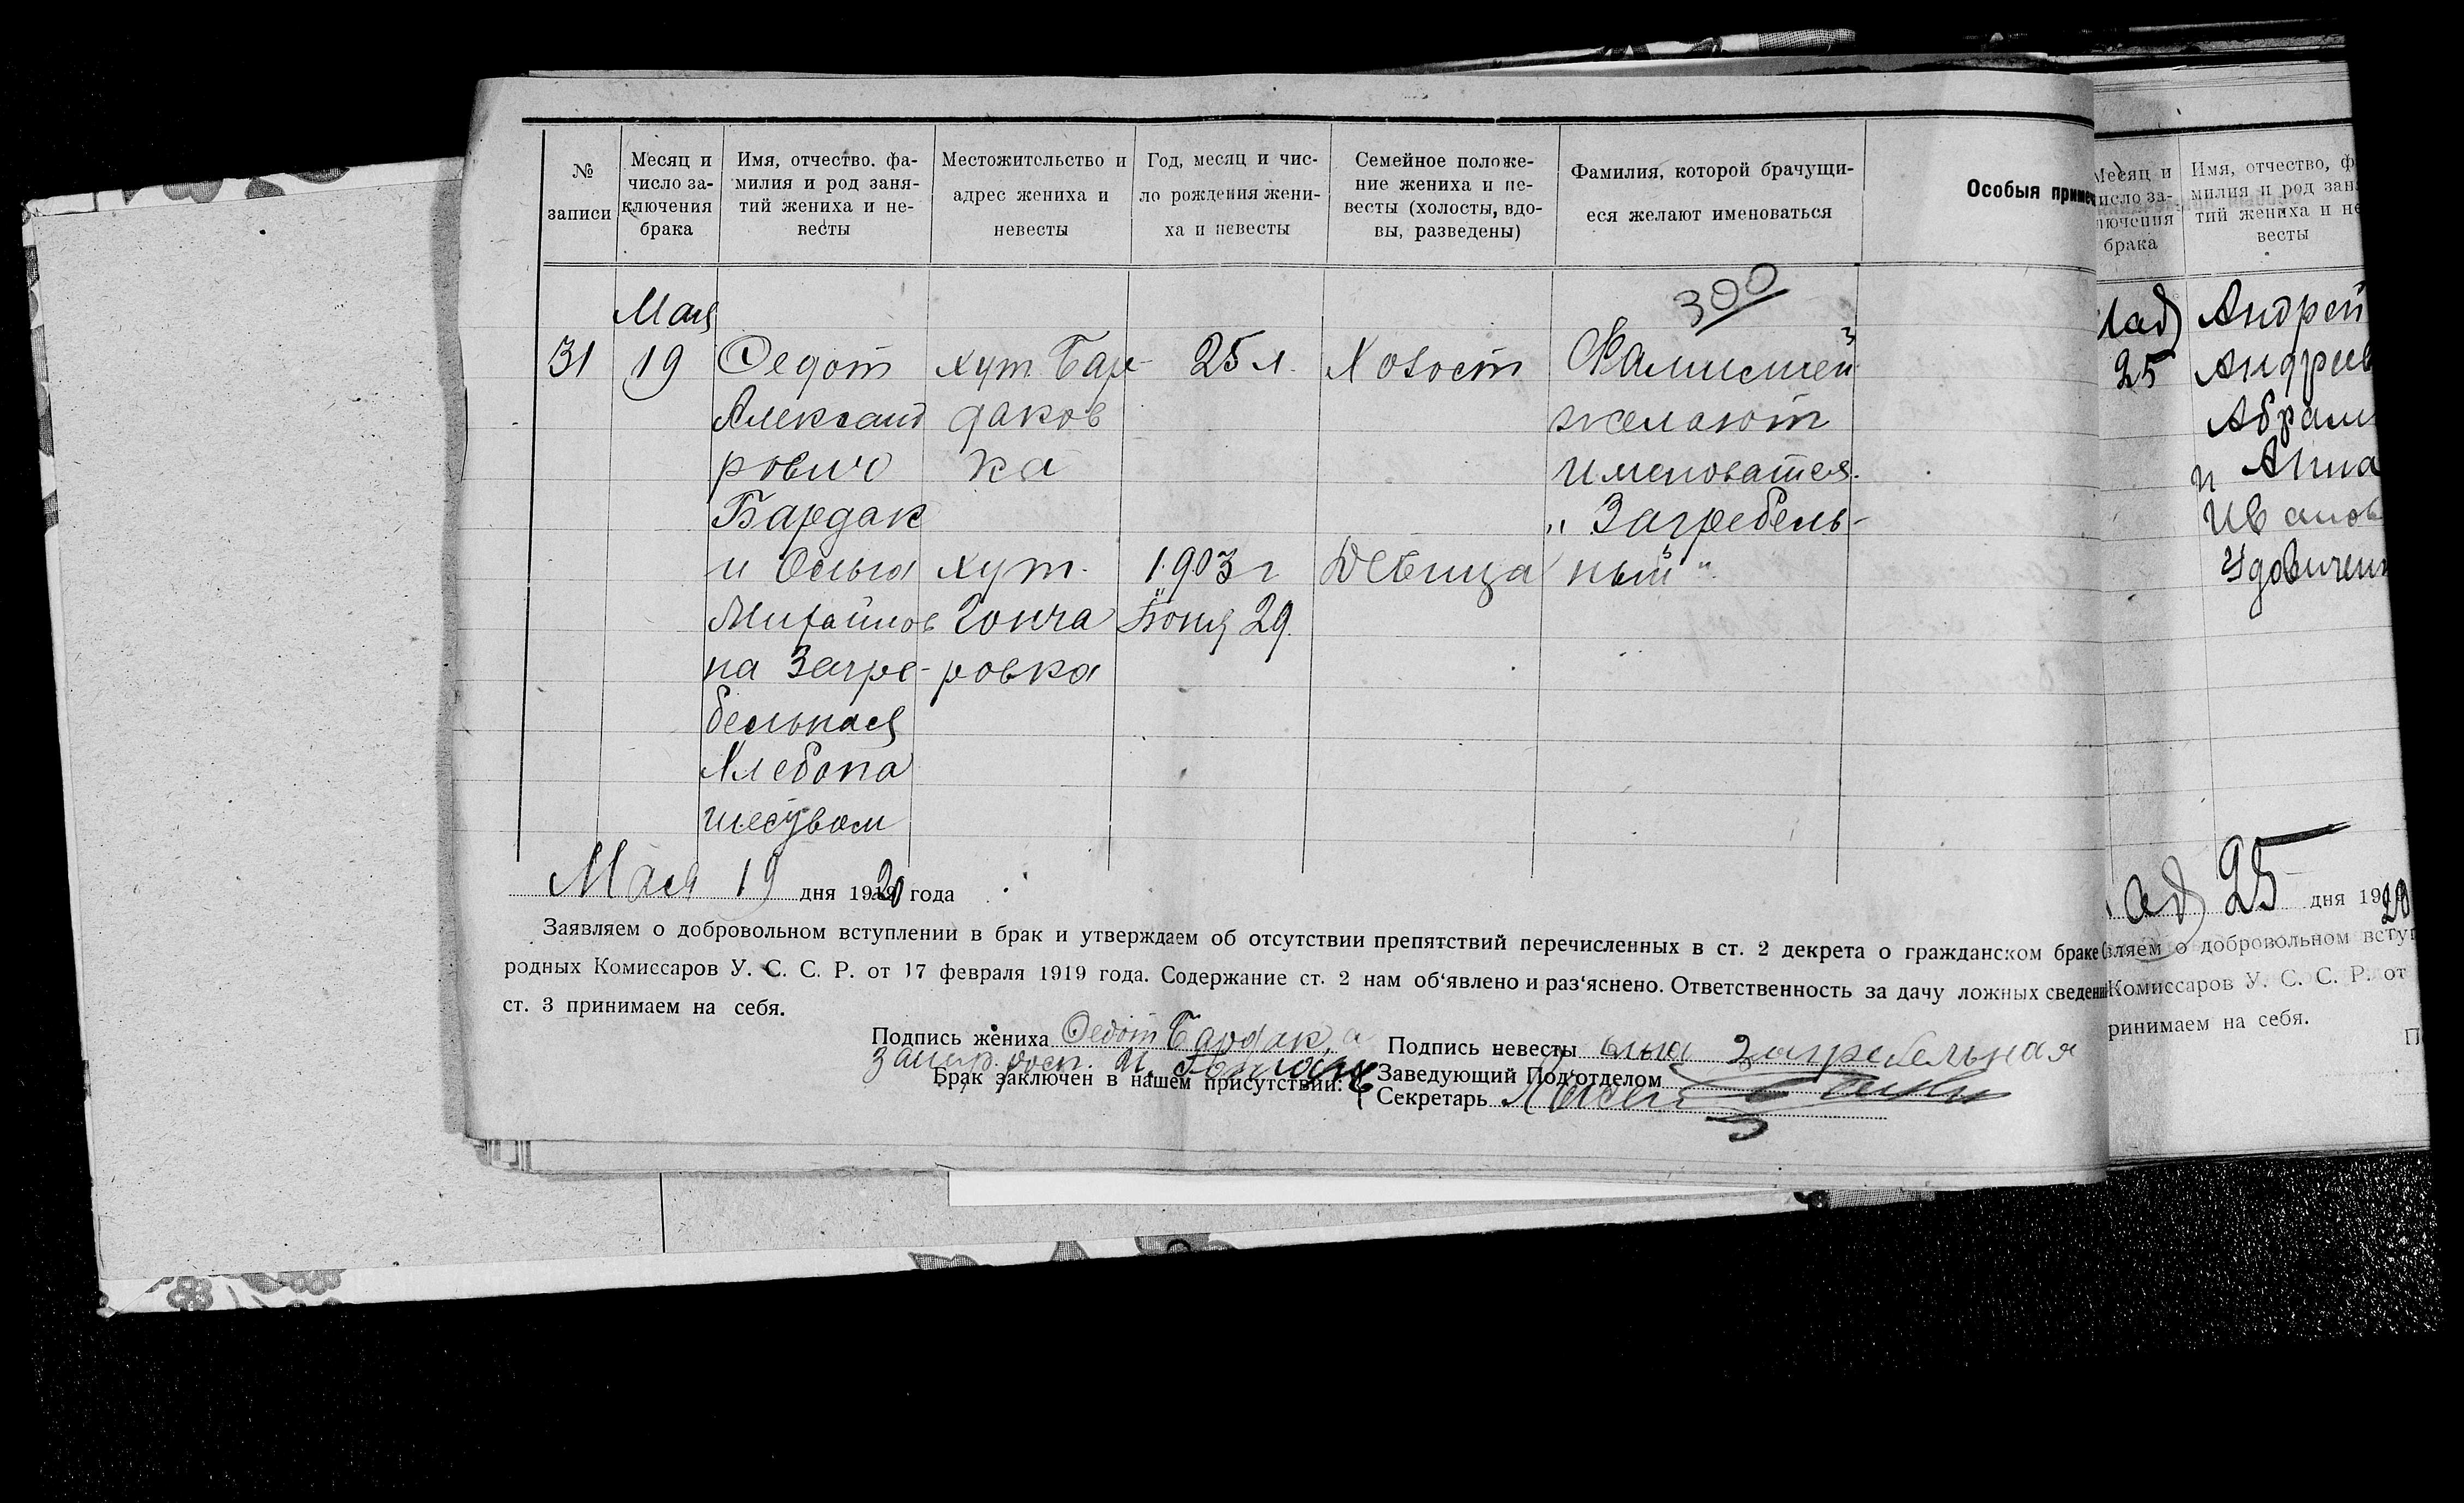 № записи
Месяц и число заключения брака
Имя, отчество. фамилия и род занятий жениха и невесты
Местожительство и адрес жениха и невесты
Год, месяц и число рождения жениха и невесты
Семейное положение жениха и невесты (холосты, вдовы, разведены)
Фамилия, которой брачущиеся желают именоваться
Особыя примеч
300
Мая
31 19 Федот хут. Бар- 25 л. Холост Фамилией
Александ даков желают
рович ка именоватся
Бардак „Загребель-
и Ольга хут. 1903 г Девица ный"
Михайлов Гонча Июня 29.
на Загре- ровка
бельная
Хлебопа
шеством
Мая 19 дня 1920 года
Заявляем о добровольном вступлении в брак и утверждаем об отсутствии препятствий перечисленных в ст. 2 декрета о гражданском браке
родных Комиссаров У. С. С. Р. от 17 февраля 1919 года. Содержание ст. 2 нам об‘явлено и раз‘яснено. Ответственность за дачу ложных сведени
ст. 3 принимаем на себя.
Подпись жениха Федот Бардак, а
Подпись невесты Загребельная
Брак заключен в нашем присутствии:
Заведующий Под‘отделом
Секретарь
Месяц и
число за-
лючения
брака
Имя, отчество, ф
милия и род зан
тий жениха и не
весты
Андрей
25 Андреев
Абрам
и Анна
Иванов
Удовичен
25 дня 1920
вляем о добровольном всту
Комиссаров У. С. С. Р. от
ринимаем на себя.